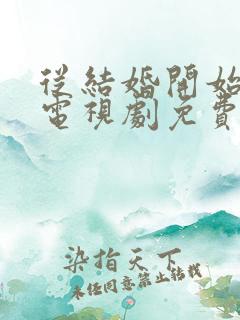 從結婚開始
電視劇免費
染指天下
未经同意禁止转载